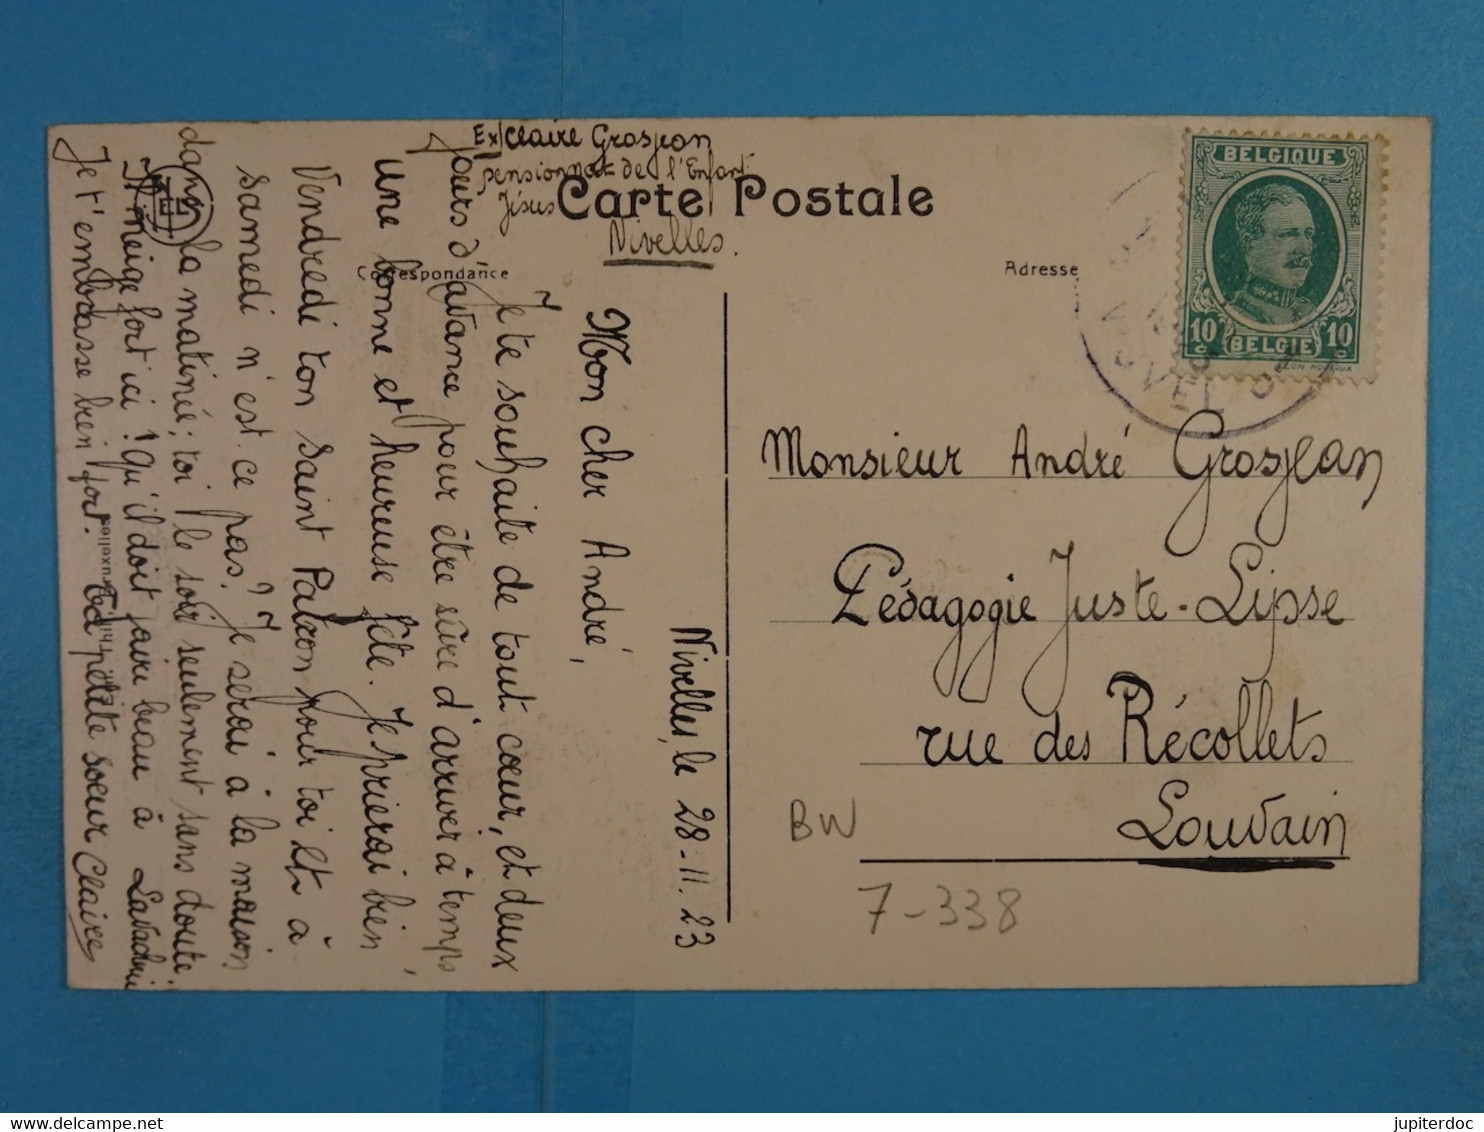 Ex/Claire Grosjean
pensionnat de l'Enfant
Jésus
Nivelles.
Carte Postale
Correspondance
Adresse
BELGIQUE
10 c
10 c
BELGIE
Nivelles, le 28-11.23
Mon cher André,
Je te souhaite de tout cœur, et deux
jours d'avance pour être sûre d'arriver à temps,
une bonne et heureuse fête. Je prierai bien
Vendredi ton Saint Patron pour toi Et à
samedi n'est-ce pas? Je serai à la maison
dans la matinée; toi le soir seulement sans doute.
Il neige fort ici! Qu'il doit faire beau à
Je t'embrasse bien fort. Ta petite soeur Claire
Monsieur André Grosjean
Pédagogie Juste-Lipse
rue des Récollets
Louvain
BW
7-338
jupiterdoc